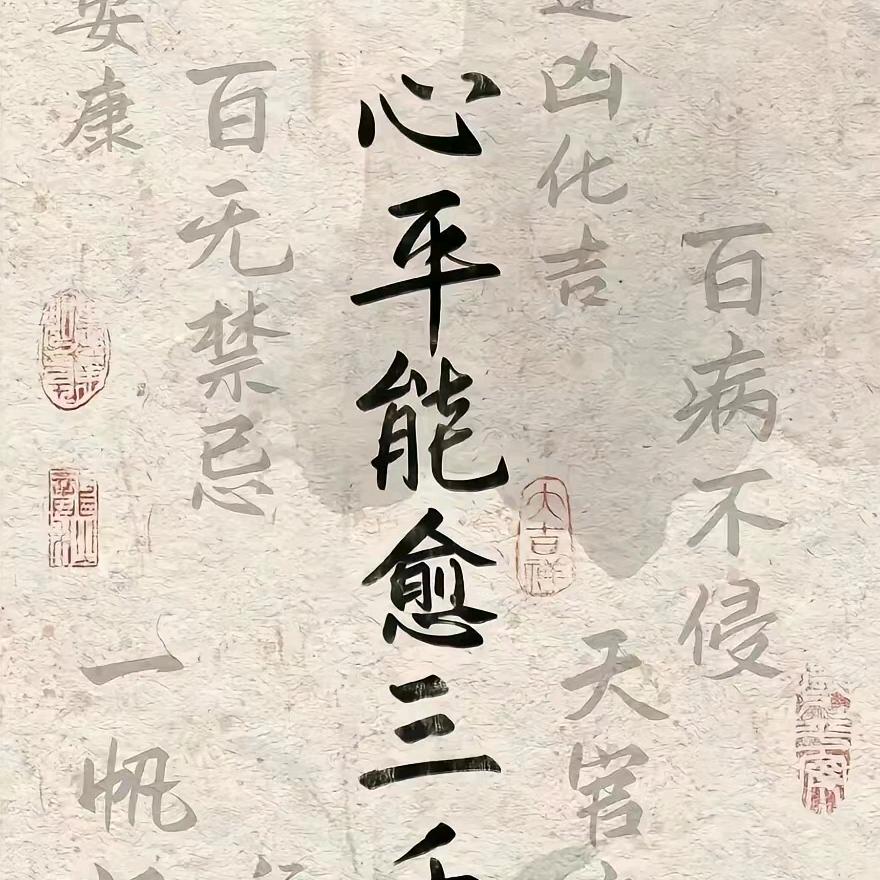 百病不侵
凶化吉
天官
大吉祥
心平能愈三
百无禁忌
安康
一帆